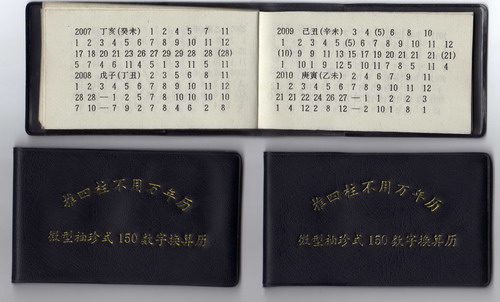 2007 丁亥(癸未) 1 2 4 5 7 11
1 2 3 4 5 6 7 8 9 10 11 12
17 18 20 21 23 25 26 27 29 28 28 (28)
5 7 4 6 11 4 5 1 3 5 11 5
2008 戊子(丁丑) 2 3 5 6 8 11
1 2 3 4 5 6 7 8 9 10 11 12
28 28 — 1 2 5 7 8 10 10 10 10
7 10 — 7 9 2 7 8 4 6 2 8
2009 己丑(辛未) 3 4 (5) 6 8 10
1 2 3 4 5 (5) 6 7 8 9 10 11 12
(10) 9 9 11 13 15 17 19 20 21 21 21 (21)
1 10 1 9 12 5 10 11 7 8 5 11 4
2010 庚寅(乙未) 2 4 6 7 9 11
1 2 3 4 5 6 7 8 9 10 11 12
21 21 22 24 26 27 — 1 1 2 2 3
1 4 12 2 8 12 — 2 10 1 8 1
推四柱不用万年历
微型袖珍式150数字换算历
推四柱不用万年历
微型袖珍式150数字换算历